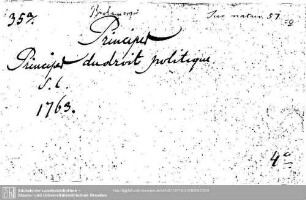 35a.
Jus natur. 57.
58
Principes
Principes du droit politique
S. l.
1763.
4°
Sächsische Landesbibliothek -
Staats- und Universitätsbibliothek Dresden